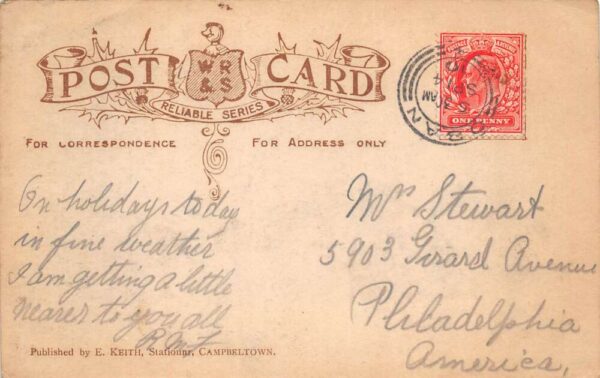 POST CARD
W R
& S
RELIABLE SERIES
FOR CORRESPONDENCE
FOR ADDRESS ONLY
OBAN
ONE PENNY
On holidays today
in fine weather
I am getting a little
nearer to you all
Mrs Stewart
5903 Girard Avenue
Philadelphia
America,
Published by E. KEITH, Stationer, CAMPBELTOWN.